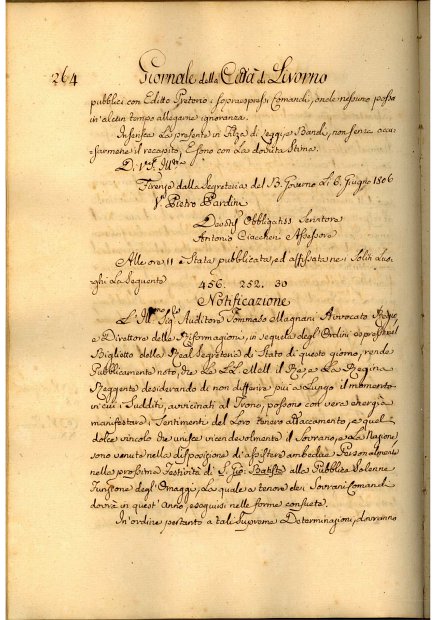 264
Giornale della Città di Livorno
pubblici con Editto Pretorio i sopraespressi Comandi, onde nessuno possa
in alcun tempo allegarne ignoranza.
Inserisca La presente in Filza di Leggi, e Bandi, non senza accu-
sarmene il recapito; E sono con La dovuta Stima
Di V.S. Ill.ma
Firenze dalla Segreteria del B. Governo Li 6. Giugno 1806
Pietro Pardini
Devotis. Obbligatiss. Servitore
Antonio Ciaccheri Assessore
Alle ore 11 è Stata pubblicata, ed affissata nei Soliti Luo-
ghi La Seguente
456. 252. 30
Notificazione
L'Ill.mo Sig.e Auditore Tommaso Magnani Avvocato Regio,
e Direttore della Riformagioni, in sequela degl'Ordini espressi nel
Biglietto della Real Segreteria di Stato di questo giorno, rende
Pubblicamente noto, che Le LL. MM. Il Re, e La Regina
Reggente desiderando di non differire più a Lungo il momento
in cui i Sudditi, avvicinati al Trono, possono con vera energia
manifestare i Sentimenti del Loro tenero attaccamento, e quel
dolce vincolo che unisce vicendevolmente il Sovrano, e La Nazione,
sono venute nella disposizione di assistere ambedue Personalmente
nella prossima Festività di S. Gio. Batista alla Pubblica Solenne
Funzione degl'Omaggi, La quale a tenore dei Sovrani Comandi
dovrà in quest'Anno, eseguirsi nelle forme consuete.
In ordine pertanto a tali Supreme Determinazioni, dovranno